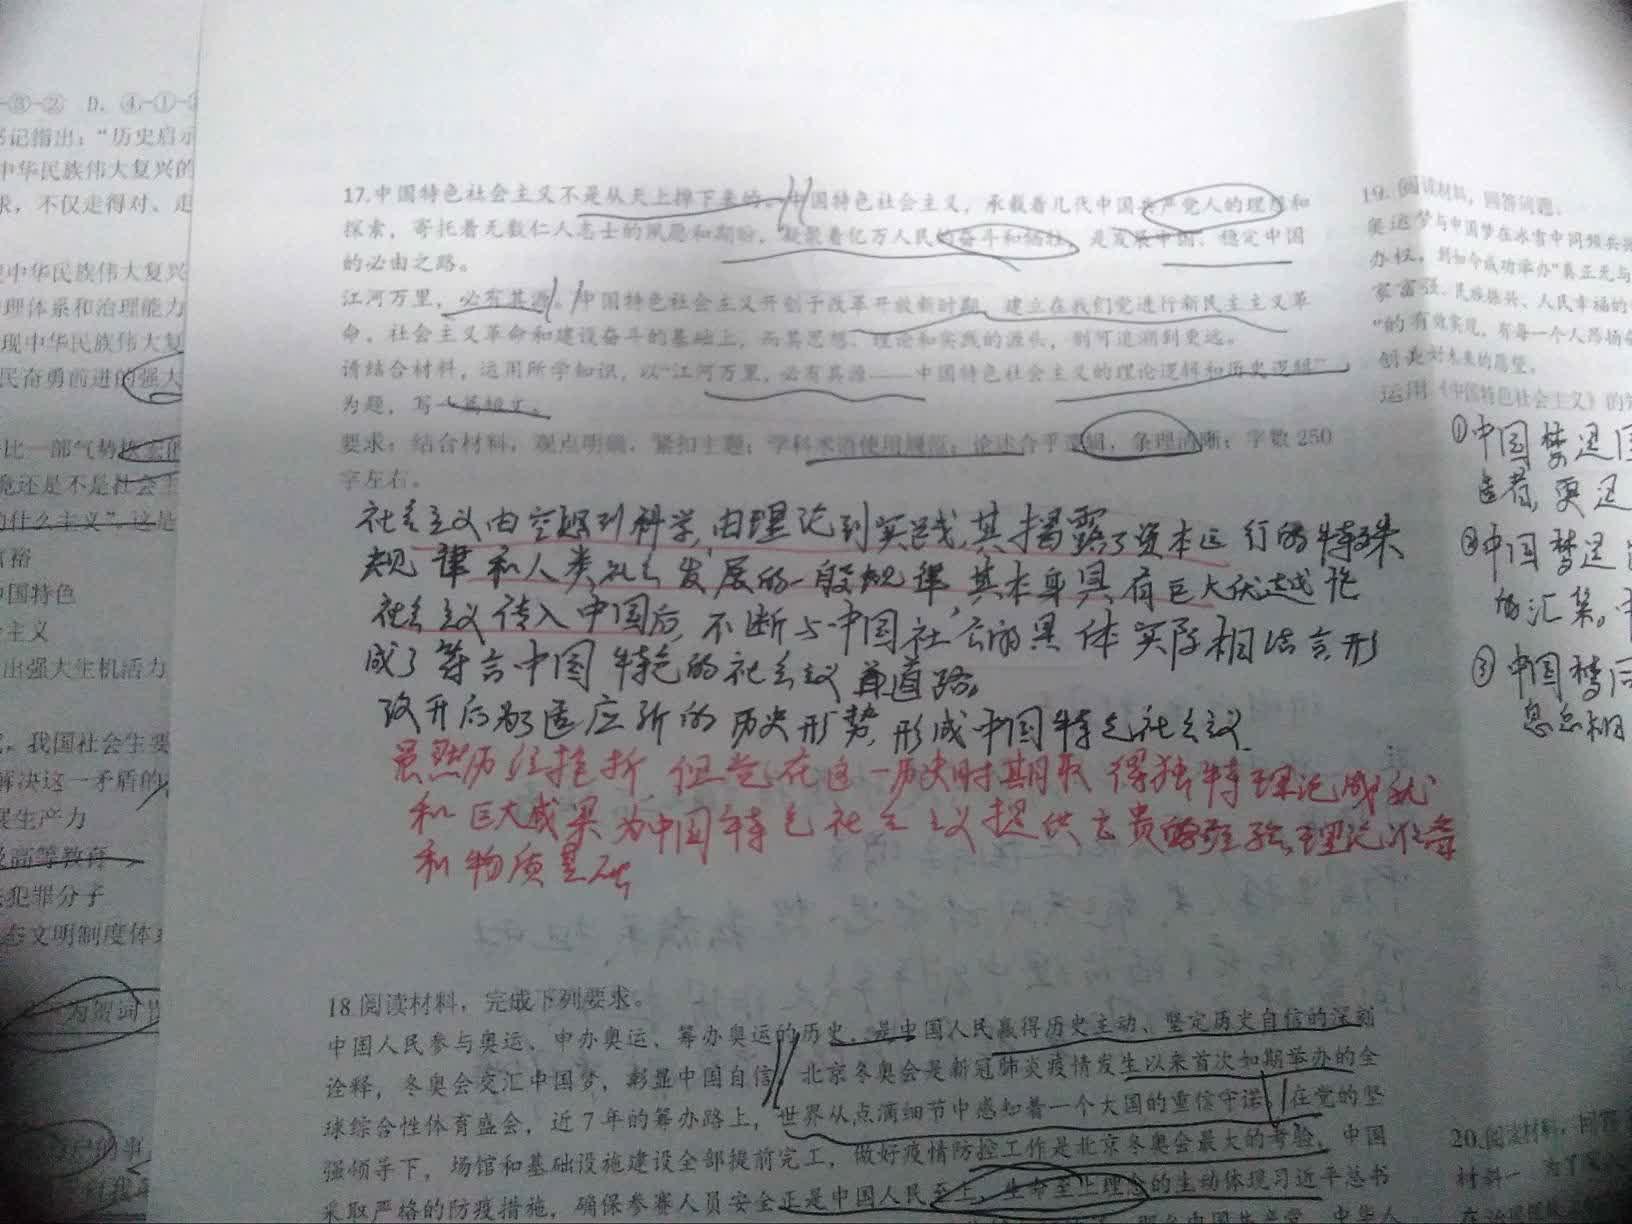 -③-② D. ④-①-
书记指出：“历史启示
中华民族伟大复兴的
求，不仅走得对、走
现中华民族伟大复兴
理体系和治理能力
现中华民族伟大复
民奋勇前进的强大
比一部气势恢宏的
竟还是不是社会主
的什么主义”，这是
富裕
中国特色
会主义
出强大生机活力
我国社会生要
解决这一矛盾的
展生产力
及高等教育
犯罪分子
态文明制度体系
为贺词
17.中国特色社会主义不是从天上掉下来的。中国特色社会主义，承载着几代中国共产党人的理想和
探索，寄托着无数仁人志士的夙愿和期盼，凝聚着亿万人民的奋斗和牺牲，是发展中国、稳定中国
的必由之路。
江河万里，必有其源。中国特色社会主义开创于改革开放新时期，建立在我们党进行新民主主义革
命、社会主义革命和建设奋斗的基础上，而其思想、理论和实践的源头，则可追溯到更远。
请结合材料，运用所学知识，以“江河万里，必有其源——中国特色社会主义的理论逻辑和历史逻辑”
为题，写一篇短文。
要求：结合材料，观点明确，紧扣主题；学科术语使用规范；论述合乎逻辑，条理清晰；字数 250
字左右。
社会主义由空想到科学，由理论到实践，其揭露了资本运行的特殊
规律和人类社会发展的一般规律，其本身具有巨大优越性
社会主义传入中国后，不断与中国社会的具体实际相结合，形
成了符合中国特色的社会主义道路。
改开后为了适应新的历史形势，形成中国特色社会主义.
虽然历经挫折，但党在这一历史时期取得独特理论成就
和巨大成果为中国特色社会主义提供宝贵的经验、理论准备
和物质基础
18.阅读材料，完成下列要求。
中国人民参与奥运、申办奥运、筹办奥运的历史，是中国人民赢得历史主动、坚定历史自信的深刻
诠释，冬奥会交汇中国梦，彰显中国自信。北京冬奥会是新冠肺炎疫情发生以来首次如期举办的全
球综合性体育盛会，近 7 年的筹办路上，世界从点滴细节中感知着一个大国的重信守诺。在党的坚
强领导下，场馆和基础设施建设全部提前完工，做好疫情防控工作是北京冬奥会最大的考验，中国
采取严格的防疫措施，确保参赛人员安全正是中国人民至上，生命至上理念的生动体现习近平总书
19.阅读材料，回答问题。
奥运梦与中国梦在冰雪中同频共振
办权，到如今成功举办“真正无与
家富强、民族振兴、人民幸福的
”的有效实现，有每一个人昂扬奋
创美好未来的愿望。
运用《中国特色社会主义》的
①中国梦是国
②中国梦是
的汇集。
③中国梦
息息相
20.阅读材料，回答
材料一